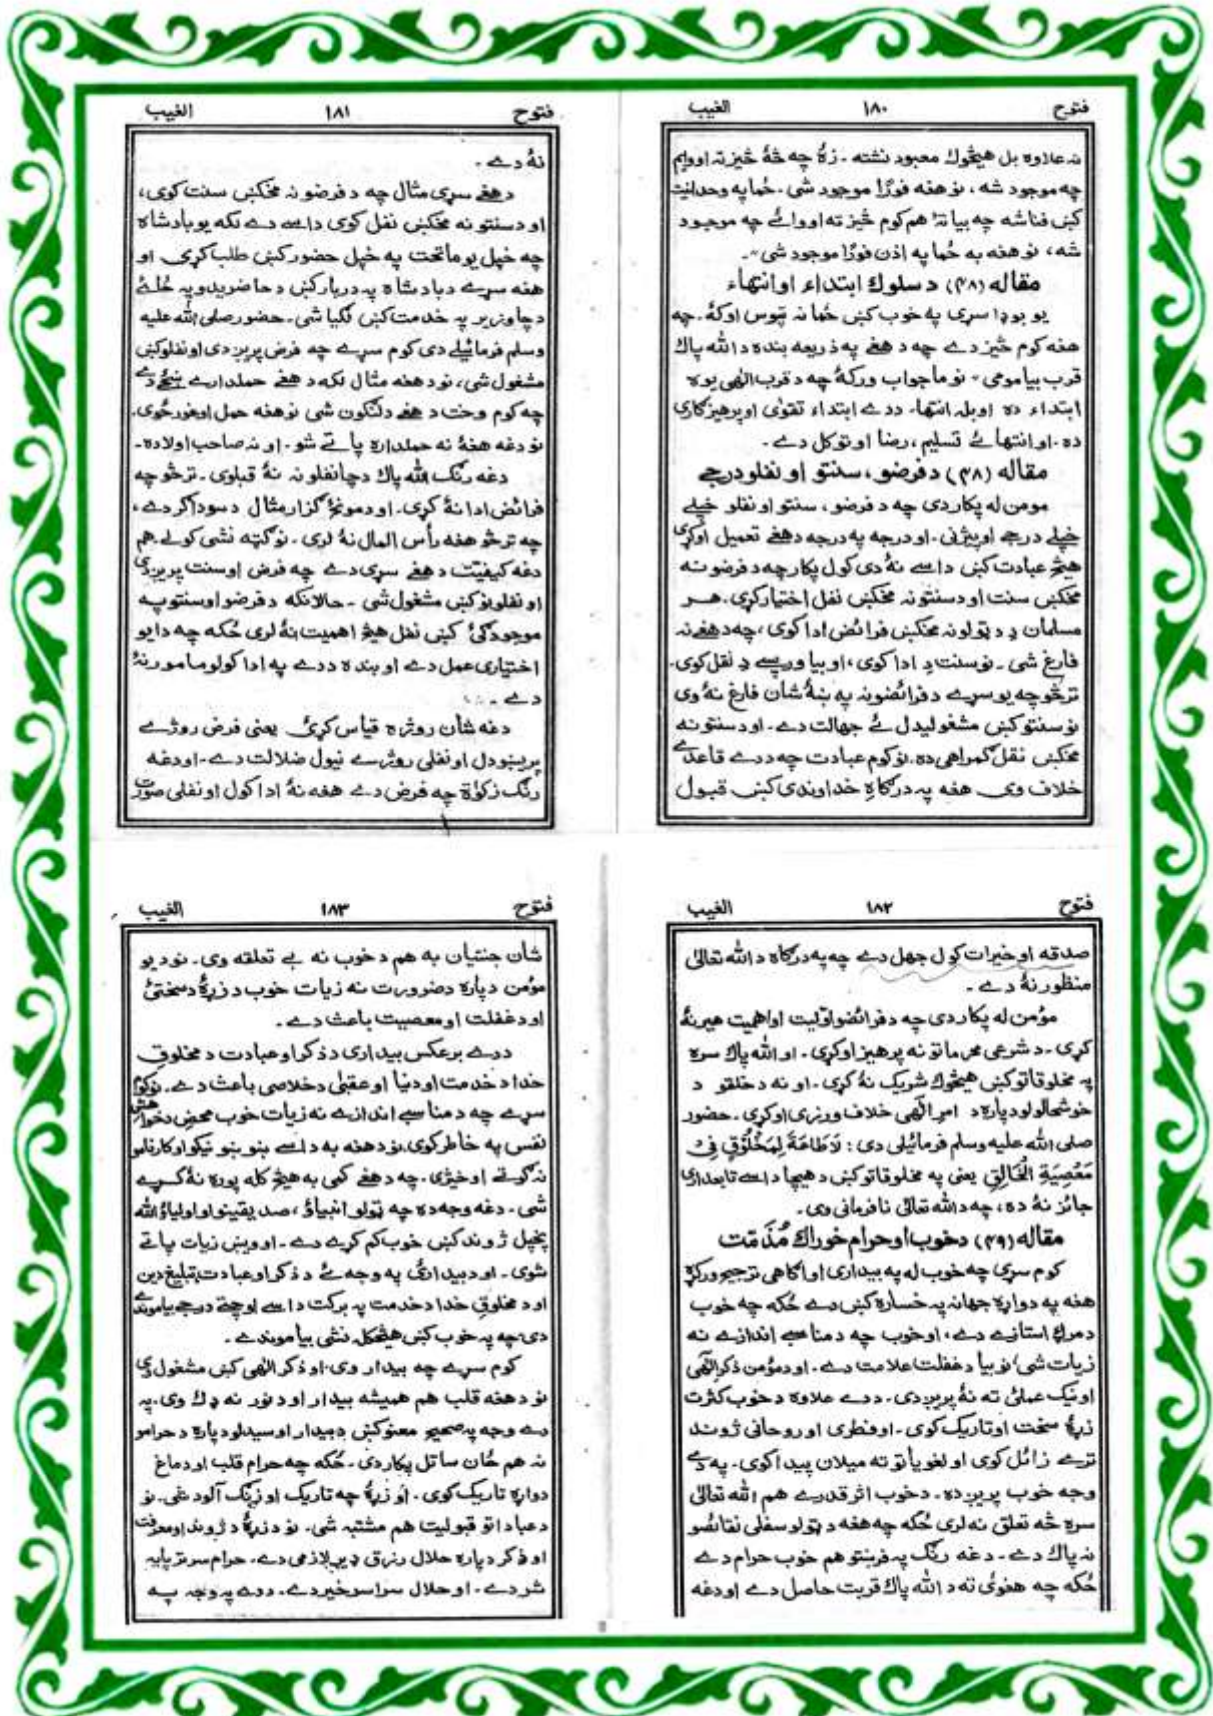 فتوح ۱۸۰ الغیب
نه علاوه بل هیڅوك معبود نشته ـ زۀ چه څۀ څیز ته اووایم
چه موجود شه ، نو هغه فورًا موجود شی ـ ځما په وحدانیت
کښ فنا شه چه بیا تۀ هم کوم څیز ته اووائے چه موجود
شه ، نو هغه به ځما په اذن فورًا موجود شی ـ
مقاله (۴۸) د سلوك ابتداء او انتهاء
یو بوډا سړی په خوب کښ ځما نه تپوس اوکۀ ـ چه
هغه کوم څیز دے چه د هغے په ذریعه بنده د الله پاك
قرب بیا مومی ـ نو ما جواب ورکۀ چه د قرب الهی یوه
ابتداء ده او بله انتها ـ ددے ابتداء تقوٰی او پرهیزگاری
ده ـ او انتهائے تسلیم ، رضا او توکل دے ـ
مقاله (۴۸) د فرضو ، سنتو او نفلو درجے
مومن له پکار دی چه د فرضو ، سنتو او نفلو خپلے
خپلے درجے اوپیژنی ـ او درجه په درجه دهغے تعمیل اوکړی
هیڅ عبادت کښ داسے نۀ دی کول پکار چه د فرضو نه
مخکښ سنت او د سنتو نه مخکښ نفل اختیار کړی ـ هر
مسلمان دِ د ټولو نه مخکښ فرائض ادا کوی ، چه د هغے نه
فارغ شی ـ نو سنت دِ ادا کوی ، او بیا ورپسے دِ نفل کوی ـ
ترڅو چه یو سړے د فرائضو نه په ښۀ شان فارغ نۀ وی
نو سنتو کښ مشغولیدل ئے جهالت دے ـ او د سنتو نه
مخکښ نفل گمراهی ده ـ نو کوم عبادت چه ددے قاعدے
خلاف وی هغه په درگاهِ خداوندی کښ قبول
فتوح ۱۸۱ الغیب
نۀ دے ـ
د هغے سړی مثال چه د فرضو نه مخکښ سنت کوی ،
او د سنتو نه مخکښ نفل کوی داسے دے لکه یو بادشاه
چه خپل یو ماتحت په خپل حضور کښ طلب کړی او
هغه سړے د بادشاه په دربار کښ د حاضریدو په ځائے
د چا وزیر په خدمت کښ لگیا شی ـ حضور صلی الله علیه
وسلم فرمائیلے دی کوم سړے چه فرض پریږدی او نفلو کښ
مشغول شی ، نو د هغه مثال لکه د هغے حملدارے ښځے دے
چه کوم وخت د هغے د لنگون شی نو هغه حمل اوغورځوی ـ
نو دغه هغۀ نه حملداره پاتے شو ـ او نه صاحب اولاده ـ
دغه رنگ الله پاك د چا نفلونه نۀ قبلوی ـ ترڅو چه
فرائض ادا نۀ کړی ـ او د مونځ گزار مثال د سوداگر دے ،
چه ترڅو هغه رأس المال نۀ لری ـ نو گټه نشی کولے ـ هم
دغه کیفیت د هغے سړی دے چه فرض او سنت پریږدی
او نفلونو کښ مشغول شی ـ حالانکه د فرضو او سنتو په
موجودگئ کښ نفل هیڅ اهمیت نۀ لری ځکه چه دا یو
اختیاری عمل دے او بنده ددے په ادا کولو مامور نۀ
دے ـ
دغه شان روژه قیاس کړئ یعنی فرض روژے
پریښودل او نفلی روژے نیول ضلالت دے ـ او دغه
رنگ زکوٰة چه فرض دے هغه نۀ ادا کول او نفلی صورت
فتوح ۱۸۲ الغیب
صدقه او خیرات کول جهل دے چه په درگاه د الله تعالٰی
منظور نۀ دے ـ
مؤمن له پکار دی چه د فرائضو اوّلیت او اهمیت هیر نۀ
کړی ـ د شرعی محرماتو نه پرهیز اوکړی ـ او الله پاك سره
په مخلوقاتو کښ هیڅوك شریک نۀ کړی ـ او نه د خلقو د
خوشحالولو دپاره د امرِ الٰهی خلاف ورزی اوکړی ـ حضور
صلی الله علیه وسلم فرمائیلی دی : لَاطَاعَةَ لِمَخْلُوْقٍ فِیْ
مَعْصِيَةِ الْخَالِقِ یعنی په مخلوقاتو کښ د هیچا داسے تابعداری
جائز نۀ ده ، چه د الله تعالٰی نافرمانی وی ـ
مقاله (۴۹) د خوب او حرام خوراك مُذَمّت
کوم سړی چه خوب له په بیداری او آگاهی ترجیح ورکړه
هغه په دواړه جهانه په خساره کښ دے ځکه چه خوب
د مرگ استازے دے ، او خوب چه د مناسبے اندازے نه
زیات شی ، نو بیا د غفلت علامت دے ـ او د مؤمن ذکر الٰهی
او نیک عملئ ته نۀ پریږدی ـ ددے علاوه د خوب کثرت
زړۀ سخت او تاریک کوی ـ او فطری او روحانی ژوند
ترے زائل کوی او لغویاتو ته میلان پیدا کوی ـ په دے
وجه خوب پریږده ـ د خوب اثر قدرے هم الله تعالٰی
سره څه تعلق نه لری ځکه چه هغه د ټولو سفلی نقائصو
نه پاك دے ـ دغه رنگ په فرښتو هم خوب حرام دے
ځکه چه هغوئ ته د الله پاك قربت حاصل دے او دغه
فتوح ۱۸۳ الغیب
شان جنتیان به هم د خوب نه بے تعلقه وی ـ نو د یو
مؤمن دپاره د ضرورت نه زیات خوب د زړۀ د سختئ
او د غفلت او معصیت باعث دے ـ
ددے برعکس بیداری د ذکر او عبادت د مخلوقِ
خدا د خدمت او دنیا او عقبٰی د خلاصی باعث دے ـ نو کوم
سړے چه د مناسبے اندازے نه زیات خوب محض د خواهش
نفس په خاطر کوی نو د هغه به داسے ښو ښو نیکو او کارنامو
نه گوتے اوخیژی ـ چه د هغے کمی به هیڅ کله پوره نۀ کړے
شی ـ دغه وجه ده چه ټولو انبیاؤ ، صدیقینو او اولیاؤ الله
پخپل ژوند کښ خوب کم کړے دے ـ او ویښ زیات پاتے
شوی ـ او د بیدارئ په وجه ئے د ذکر او عبادت تبلیغ دین
او د مخلوقِ خدا د خدمت په برکت داسے اوچتے درجے بیا موندے
دی ، چه په خوب کښ هیڅکله نشی بیا موندے ـ
کوم سړے چه بیدار وی ، او ذکر الٰهی کښ مشغول وی
نو د هغه قلب هم همیشه بیدار او د نور نه ډك وی ـ په
دے وجه په صحیح معنو کښ د بیدار اوسیدلو دپاره د حرامو
نه هم ځان ساتل پکار دی ـ ځکه چه حرام قلب او دماغ
دواړه تاریک کوی ـ او زړۀ چه تاریک او زنگ آلود شی ـ نو
د عباداتو قبولیت هم مشتبه شی ـ نو د زړۀ د ژوند او معرفت
او ذکر دپاره حلال رزق ډیر لازمی دے ـ حرام سر تر پایه
شر دے ـ او حلال سراسر خیر دے ـ ددے په وجه په